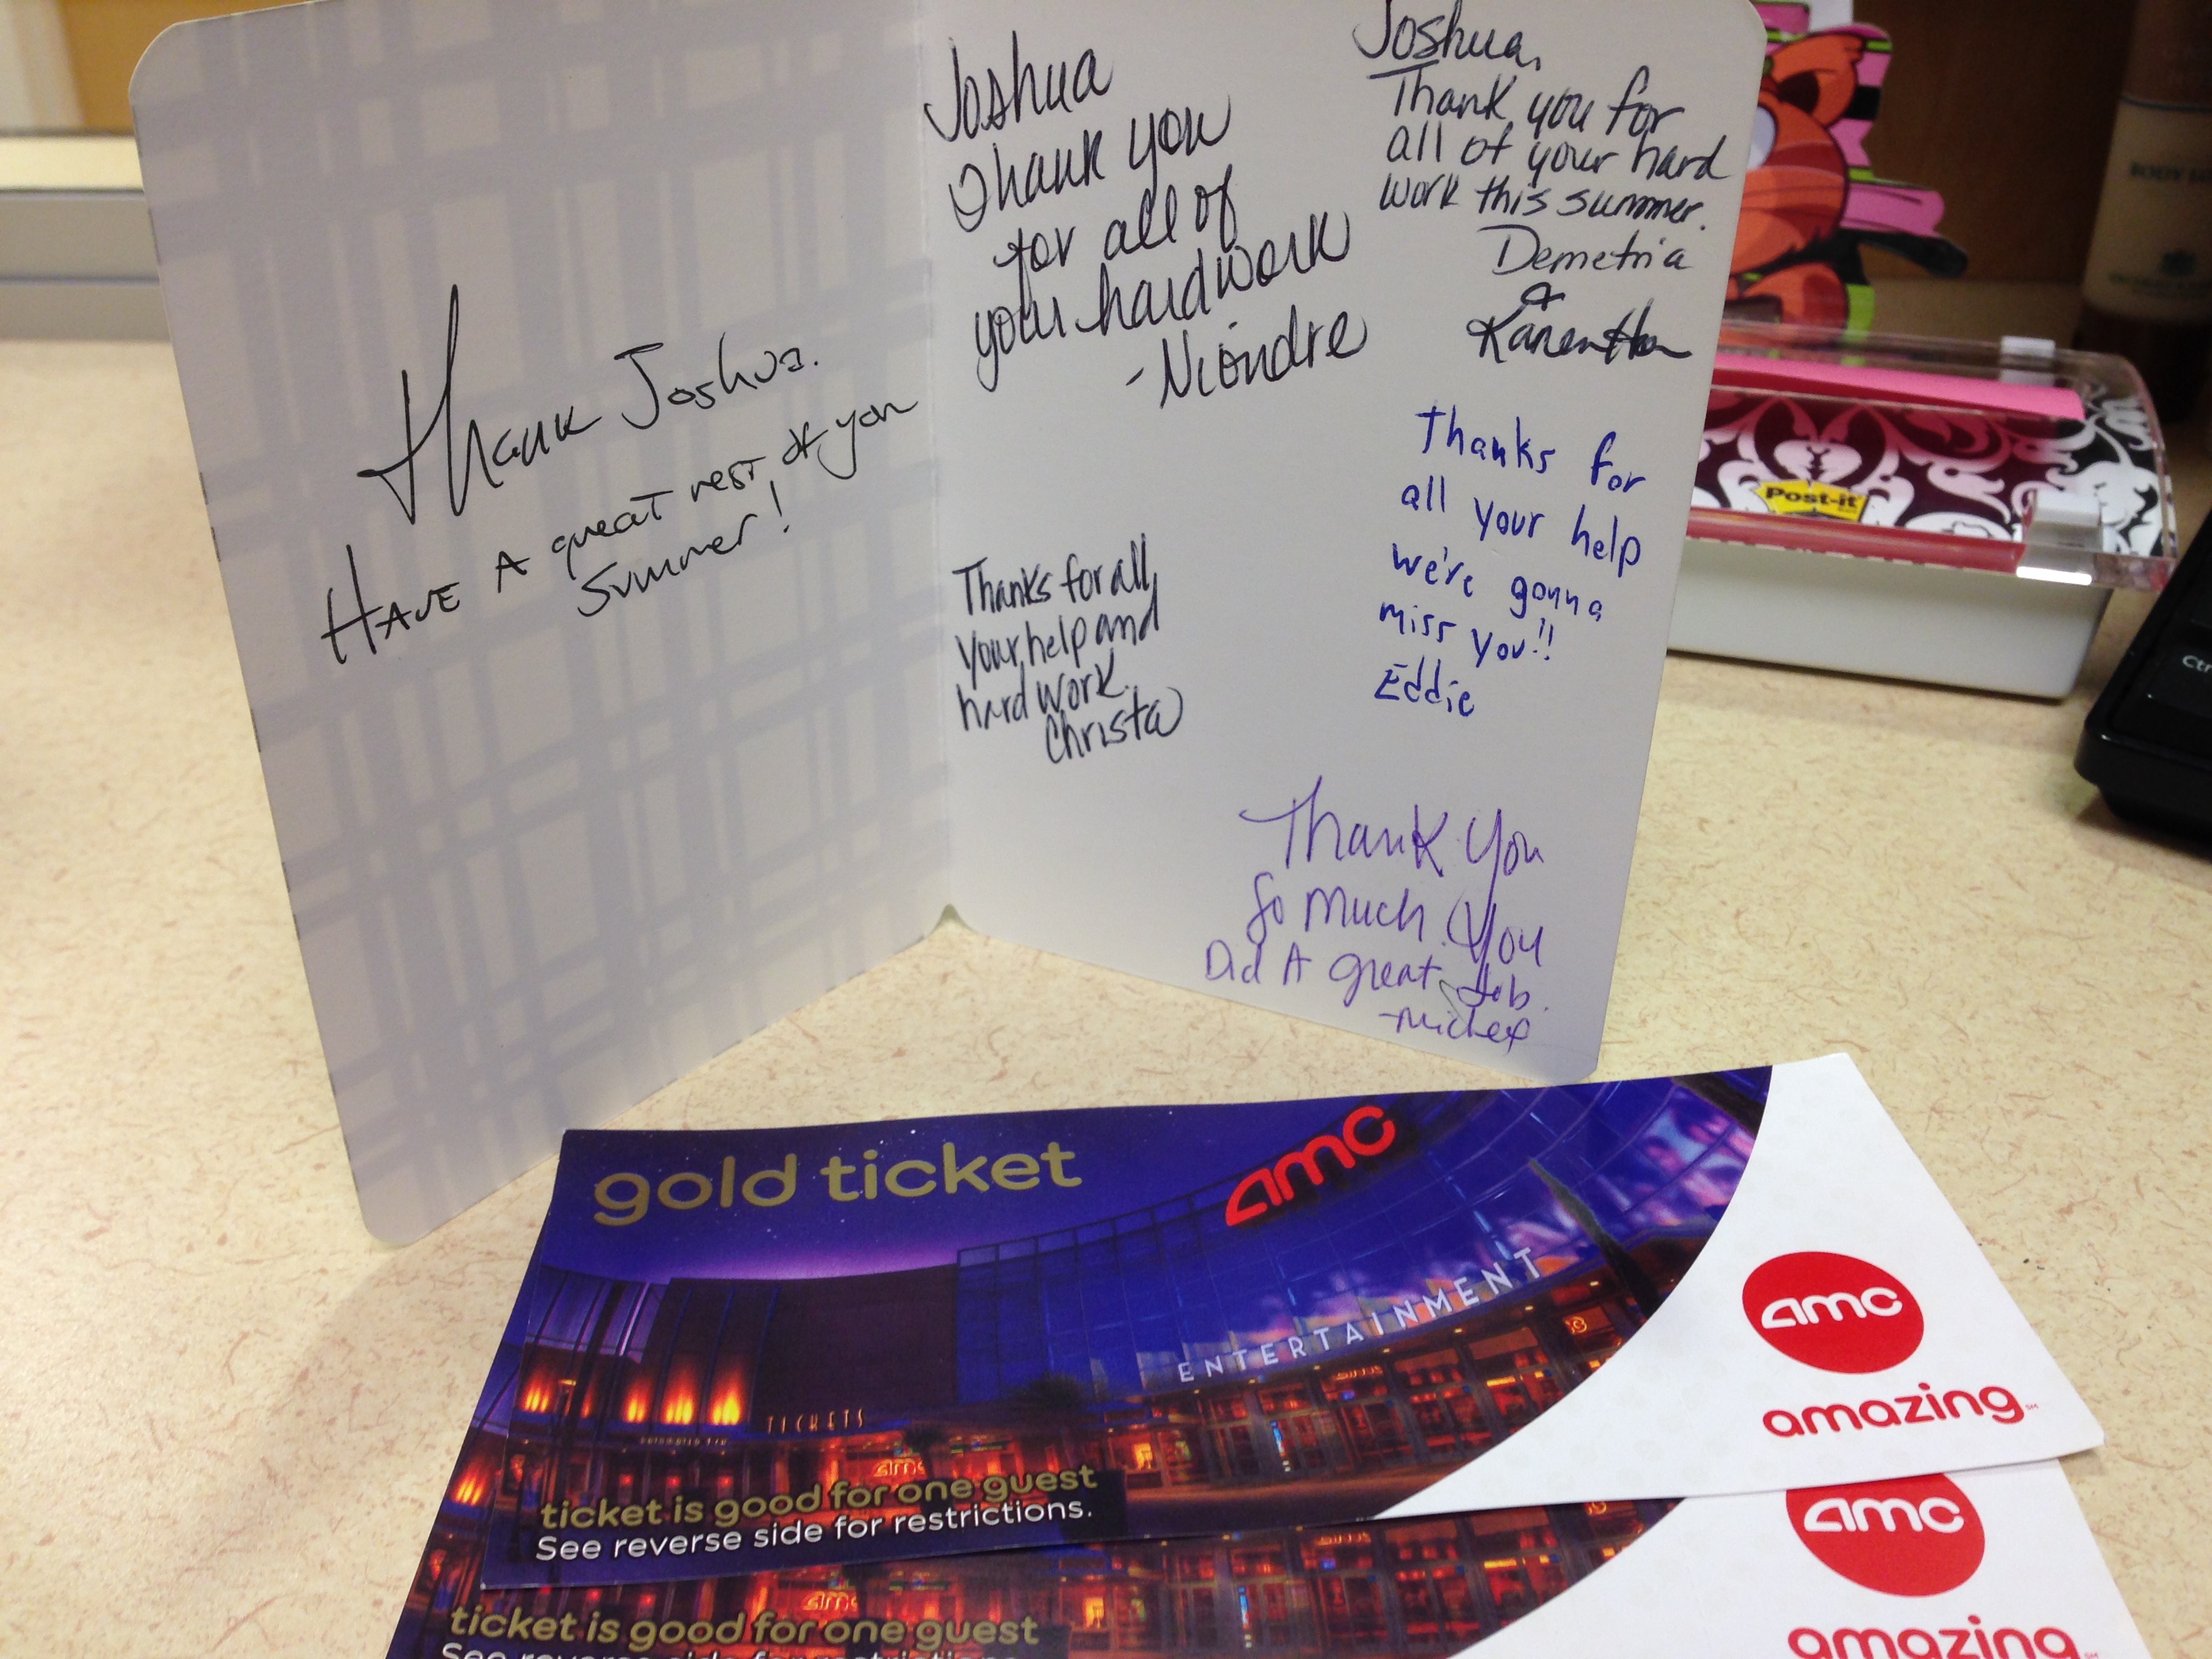 Thank Joshua.
HAVE A great rest of your
Summer!
Joshua
Thank you
for all of
your hardwork
-Niondre
Joshua,
Thank you for
all of your hard
work this summer.
Demetria
&
Thanks for
all your help
we're gonna
miss you!!
Eddie
Thanks for all
your help and
hard work.
Christa
Thank You
So Much. You
Did A great Job.
Post-it
Ctr
gold ticket
amc
ENTERTAINMENT
TICKETS
amc
ticket is good for one guest
See reverse side for restrictions.
amc
amazing℠
amc
ticket is good for one guest
amc
amazing℠